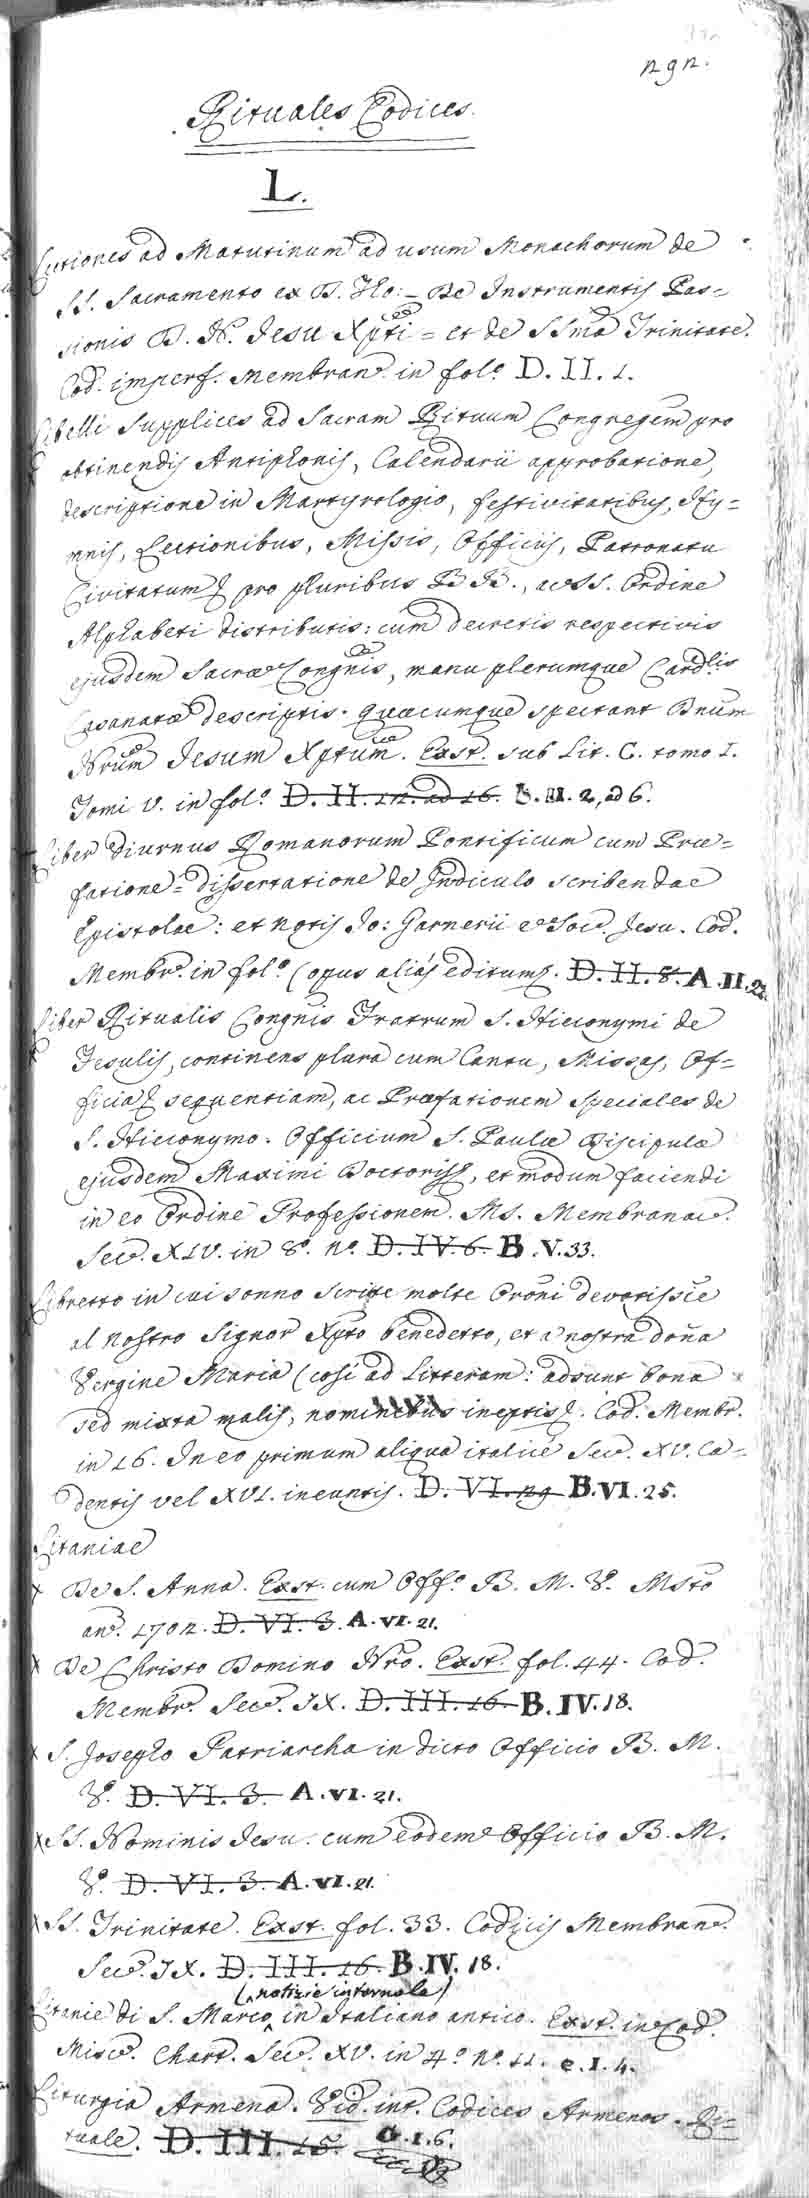 292.
Rituales Codices.
L.
Lectiones ad Matutinum ad usum Monachorum de
SS. Sacramento ex D. Tho: = De Instrumentis Pas=
sionis D. N. Jesu Xpti = et de SSma Trinitate.
Cod. imperf. Membran. in fol.o D. II. 1.
Libelli supplices ad Sacram Rituum Congregem pro
obtinendis Antiphonis, Calendarii approbatione,
descriptione in Martyrologio, festivitatibus, Hy=
mnis, Lectionibus, Missis, Officiis, Patronatu
Civitatum pro pluribus BB., ac SS. Ordine
Alphabeti distributis: cum decretis respectivis
ejusdem Sacrae Congnis, manu plerumque Cardlis
Casanatae descriptis. Quaecumque spectant Dnum
Nrum Jesum Xptum. Exst. sub Lit. C. tomo I.
Tomi V. in fol.o D. II. 12. ad 16. B. III. 2, ad 6.
Liber diurnus Romanorum Pontificum cum Prae=
fatione = dissertatione de Indiculo scribendae
Epistolae: et notis Jo: Garnerii e Soc. Jesu. Cod.
Membr. in fol.o (opus aliàs editum). D. II. 8. A. II. 22.
Liber Ritualis Congnis Fratrum S. Hieronymi de
Fesulis, continens plura cum Cantu, Missas, Of=
ficia, sequentiam, ac Praefationem speciales de
S. Hieronymo. Officium S. Paulae Discipulae
ejusdem Maximi Doctoris, et modum faciendi
in eo Ordine Professionem. Ms. Membranac.
Sec. XIV. in 8.o n.o D. IV. 6. B. V. 33.
Libretto in cui sonno scritte molte Oroni devotissie
al nostro Signor Xpto benedetto, et a nostra doña
Vergine Maria (così ad litteram: adsunt bona
sed mixta malis, nominibus ineptis). Cod. Membr.
in 16. In eo primum aliqua italice Sec. XV. Ca=
dentis vel XVI. ineuntis. D. VI. 29 B. VI. 25.
Litaniae
x De S. Anna. Exst. cum Off.o B. M. V. Msto
an. 1702. D. VI. 3. A. VI. 21.
x De Christo Domino Nro. Exst. fol. 44. Cod.
Membr. Sec. IX. D. III. 16. B. IV. 18.
x S. Josepho Patriarcha in dicto Officio B. M.
V. D. VI. 3. A. VI. 21.
x SS. Nominis Jesu. cum eodem Officio B. M.
V. D. VI. 3. A. VI. 21.
x SS. Trinitate. Exst. fol. 33. Codicis Membran.
Sec. IX. D. III. 16. B. IV. 18.
(notizie intorno le)
Litanie di S. Marco in Italiano antico. Exst. in Cod.
Misc. Chart. Sec. XV. in 4.o n.o 11. e. I. 4.
Liturgia Armena. Vid. int. Codices Armenos. Ri=
tuale. D. III. 15. O. I. 6.